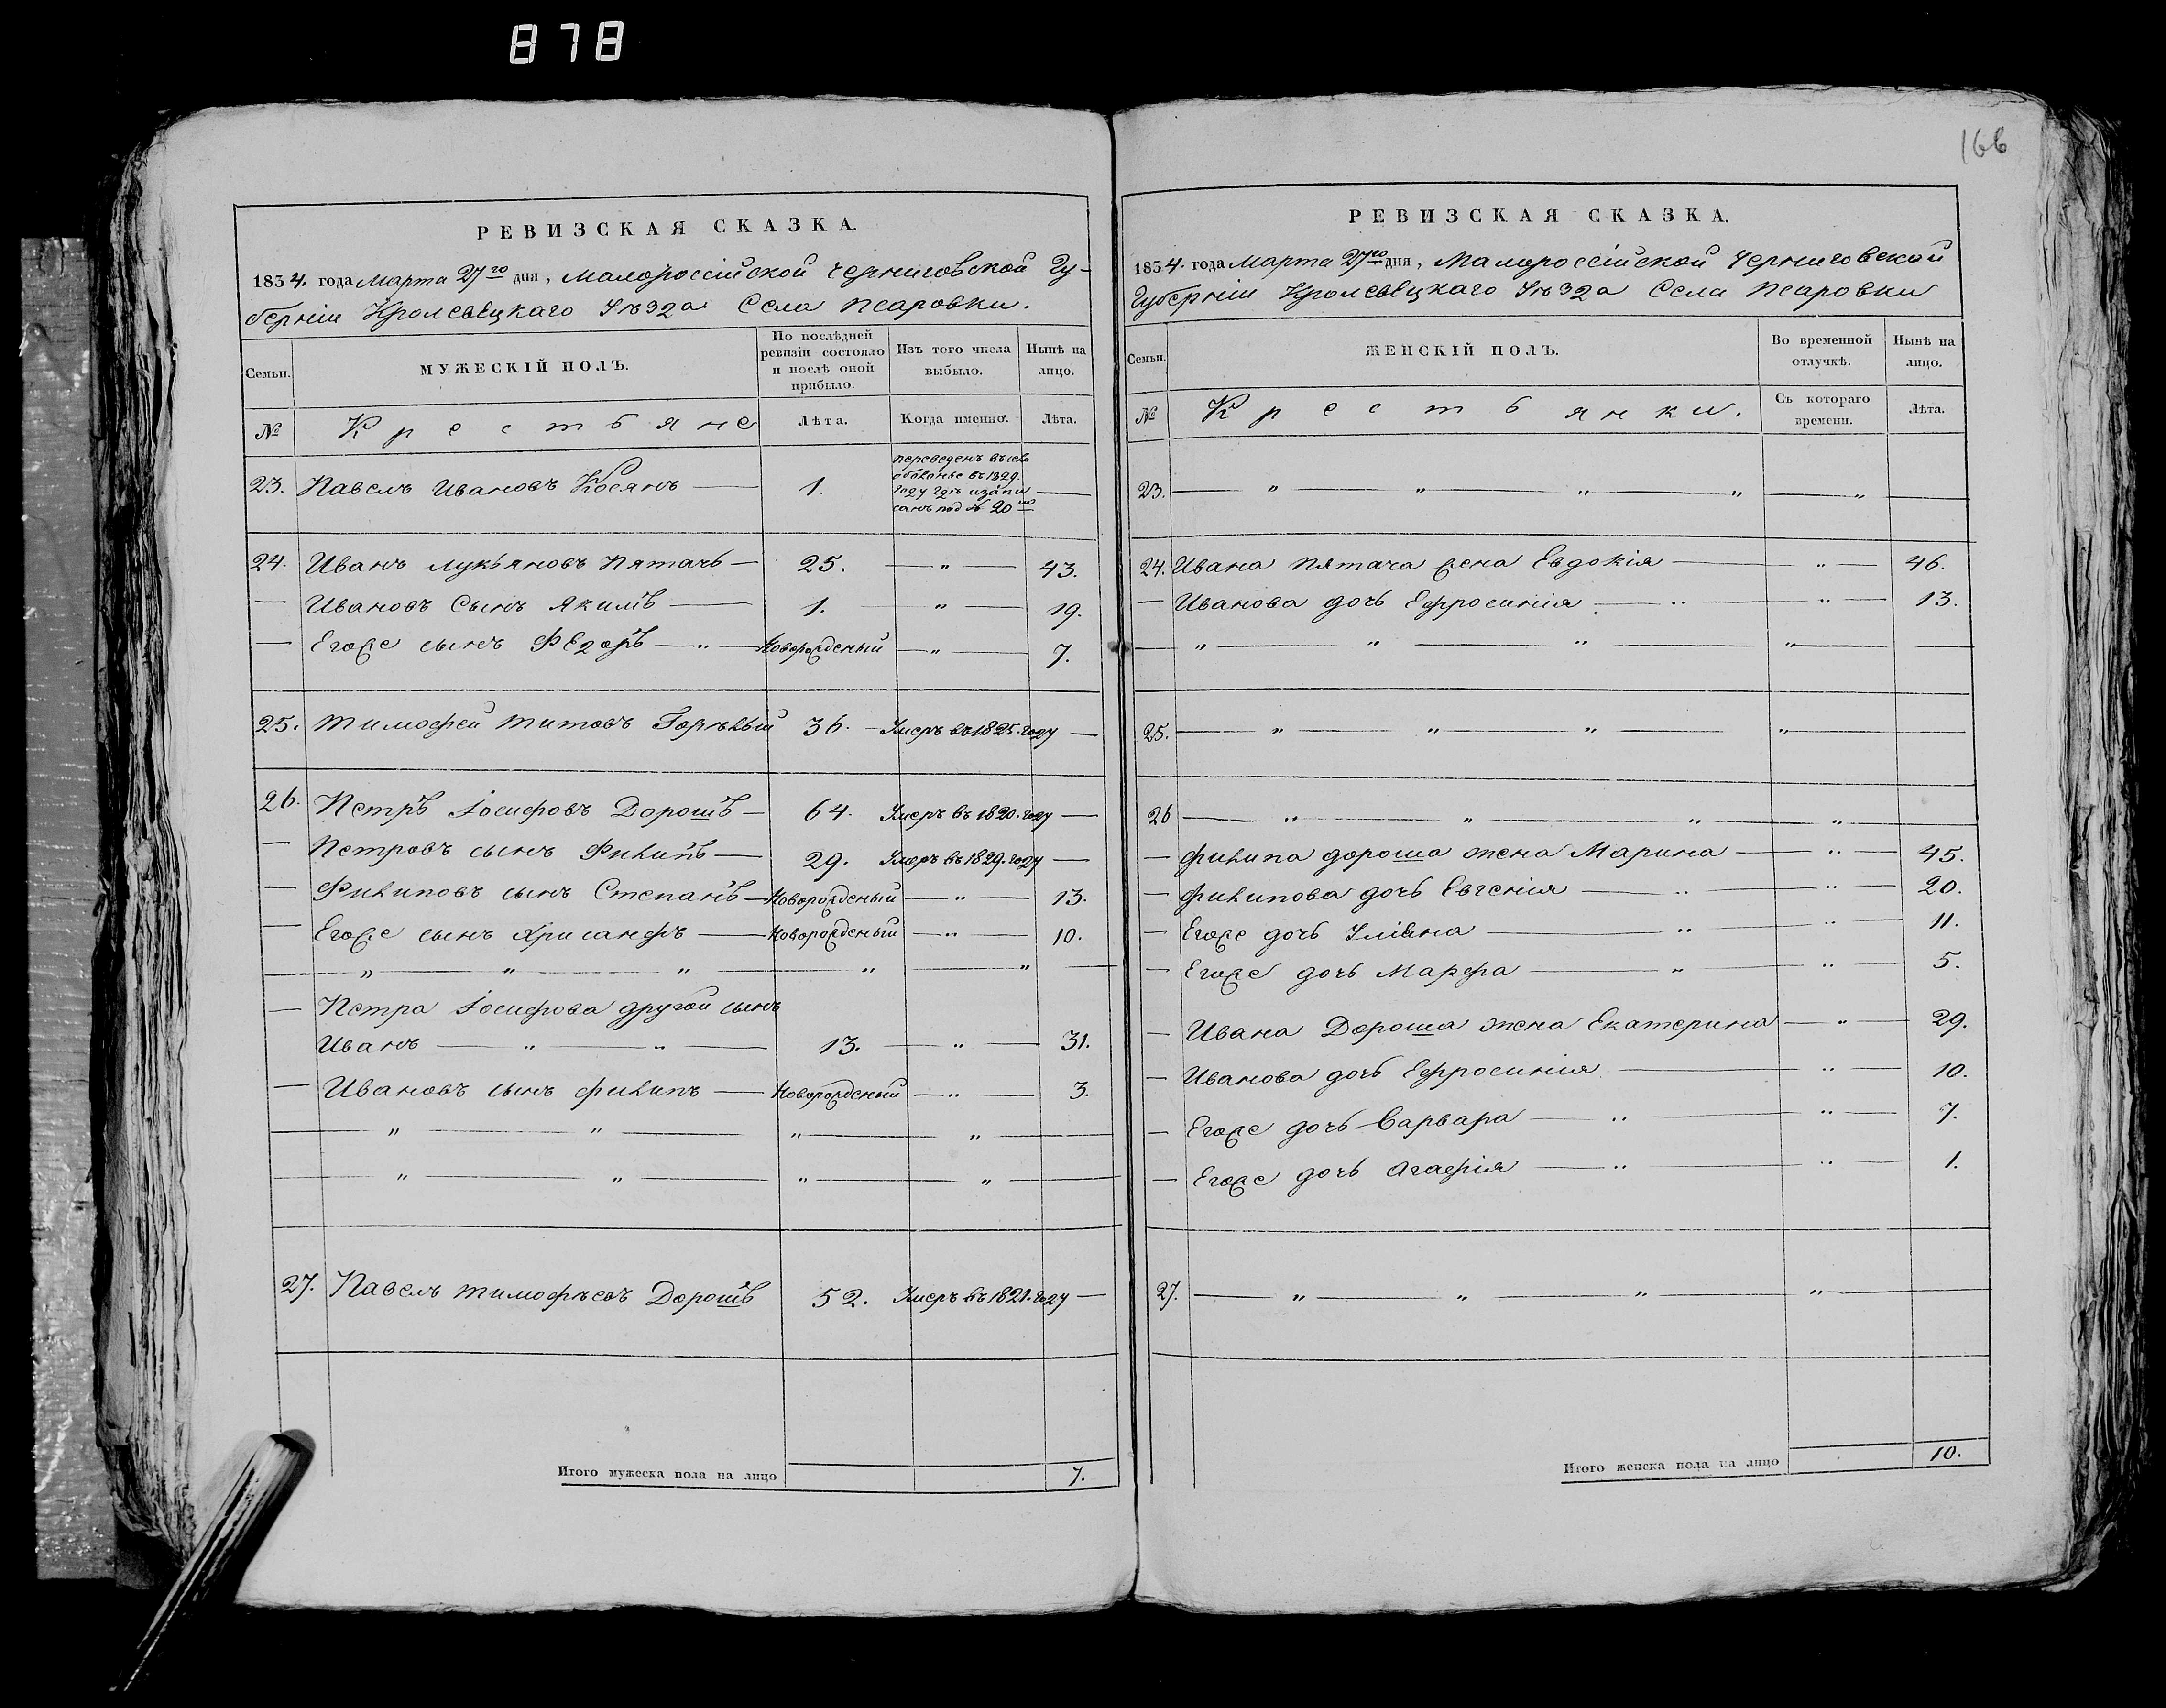 878
166
РЕВИЗСКАЯ СКАЗКА.
1834. года Марта 27го дня, Малороссійской Черниговской Гу-
берніи Кролевецкаго Уѣзда Села Псаровки.
Семьи.
МУЖЕСКІЙ ПОЛЪ.
По послѣдней ревизіи состояло и послѣ оной прибыло.
Изъ того числа выбыло.
Нынѣ на лицо.
№
Крестьяне
Лѣта.
Когда именно.
Лѣта.
23. Павелъ Ивановъ Косянъ — 1. переведенъ въ
въ 1829.
году гдѣ и запи
санъ под № 20мъ —
24. Иванъ Лукьяновъ Пятачь — 25. — „ — 43.
— Ивановъ Сынъ Якимъ — 1. — „ — 19.
— Егоже сынъ Федоръ — „ — Новорожденый — „ — 7.
25. Тимофей Титовъ 36. — Умеръ въ 1825. году —
26. Петръ Іосифовъ Дорошъ — 64. Умеръ въ 1820. году —
— Петровъ сынъ Филипъ — 29. Умеръ въ 1829. году —
— Филиповъ сынъ Степанъ — Новорожденый — „ — 13.
— Егоже сынъ Хрисанфъ — Новорожденый — „ — 10.
— „ — „ — „ — „ — „ —
— Петра Іосифова другой сынъ
Иванъ — „ — „ — 13. — „ — 31.
— Ивановъ сынъ Филипъ — Новорожденый — „ — 3.
— „ — „ — „ — „ —
— „ — „ — „ — „ —
27. Павелъ Тимофѣевъ Дорошъ 52. Умеръ въ 1821. году —
Итого мужеска пола на лицо 7.
РЕВИЗСКАЯ СКАЗКА.
1834. года Марта 27го дня, Малороссійской Черниговской
Губерніи Кролевецкаго Уѣзда Села Псаровки
Семьи.
ЖЕНСКІЙ ПОЛЪ.
Во временной отлучкѣ.
Нынѣ на лицо.
№
Крестьянки.
Съ котораго времени.
Лѣта.
23. — „ — „ — „ — „ — „ —
24. Ивана Пятача жена Евдокія — „ — 46.
— Иванова дочь Ефросинія — „ — „ — 13.
— „ — „ — „ — „ — —
25. — „ — „ — „ — „ —
26 — „ — „ — „ — „ —
— Филипа Дороша жена Марина — „ — 45.
— Филипова дочь Евгенія — „ — „ — 20.
— Егоже дочь Уліяна — „ — „ — 11.
— Егоже дочь Марфа — „ — „ — 5.
— Ивана Дороша жена Екатерина — „ — 29.
— Иванова дочь Ефросинія — „ — 10.
— Егоже дочь Варвара — „ — „ — 7.
— Егоже дочь Агафія — „ — „ — 1.
27. — „ — „ — „ — „ —
Итого женска пола на лицо 10.